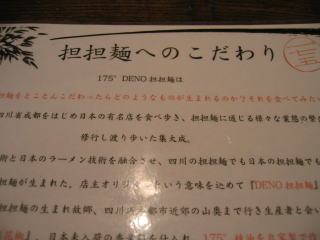 担担麺へのこだわり
175° DENO担担麺は
担麺をとことんこだわったらどのようなものが生まれるのか？それを食べてみたい
四川省成都をはじめ日本の有名店を食べ歩き、担担麺に通じる様々な業態の繁
修行し渡り歩いた集大成。
術と日本のラーメン技術を融合させ、四川の担担麺でも日本の担担麺でも
担麺が生まれた。店主オリジ という意味を込めて『DENO担担麺』
担担麺の生まれ故郷、四川 都市近郊の山奥まで行き生産者と会い
花椒』、日本未入荷の 仕入れ、175° 辣油を自家製で作